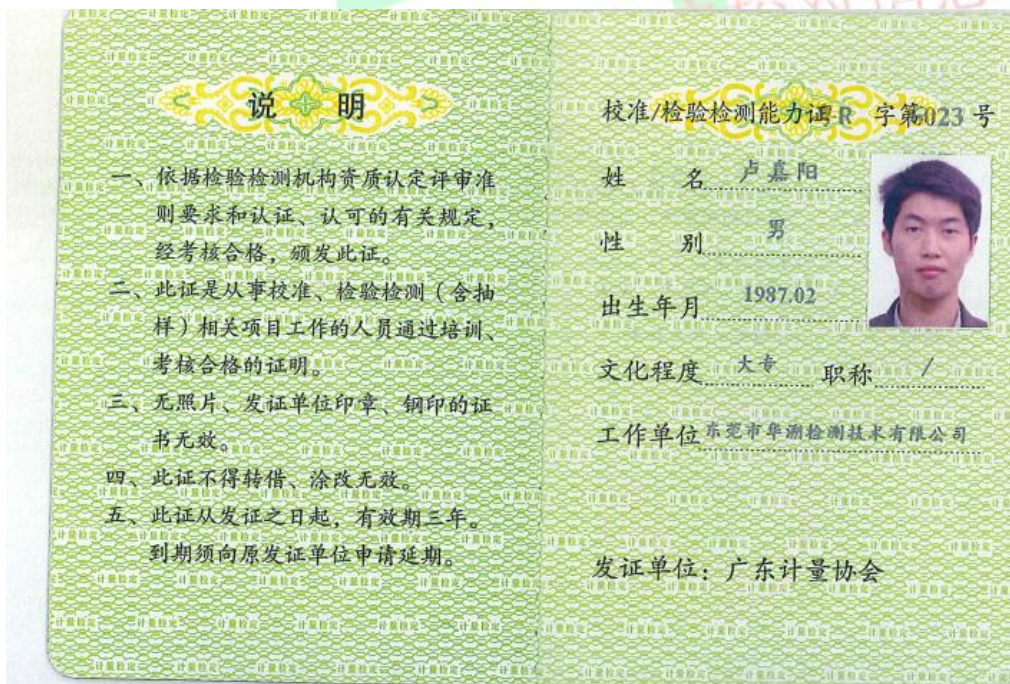 说 明
一、依据检验检测机构资质认定评审准
则要求和认证、认可的有关规定，
经考核合格，颁发此证。
二、此证是从事校准、检验检测（含抽
样）相关项目工作的人员通过培训、
考核合格的证明。
三、无照片、发证单位印章、钢印的证
书无效。
四、此证不得转借、涂改无效。
五、此证从发证之日起，有效期三年。
到期须向原发证单位申请延期。
校准/检验检测能力证 R 字第 023 号
姓 名 卢嘉阳
性 别 男
出生年月 1987.02
文化程度 大专 职称 /
工作单位 东莞市华测检测技术有限公司
发证单位：广东计量协会
计量检定